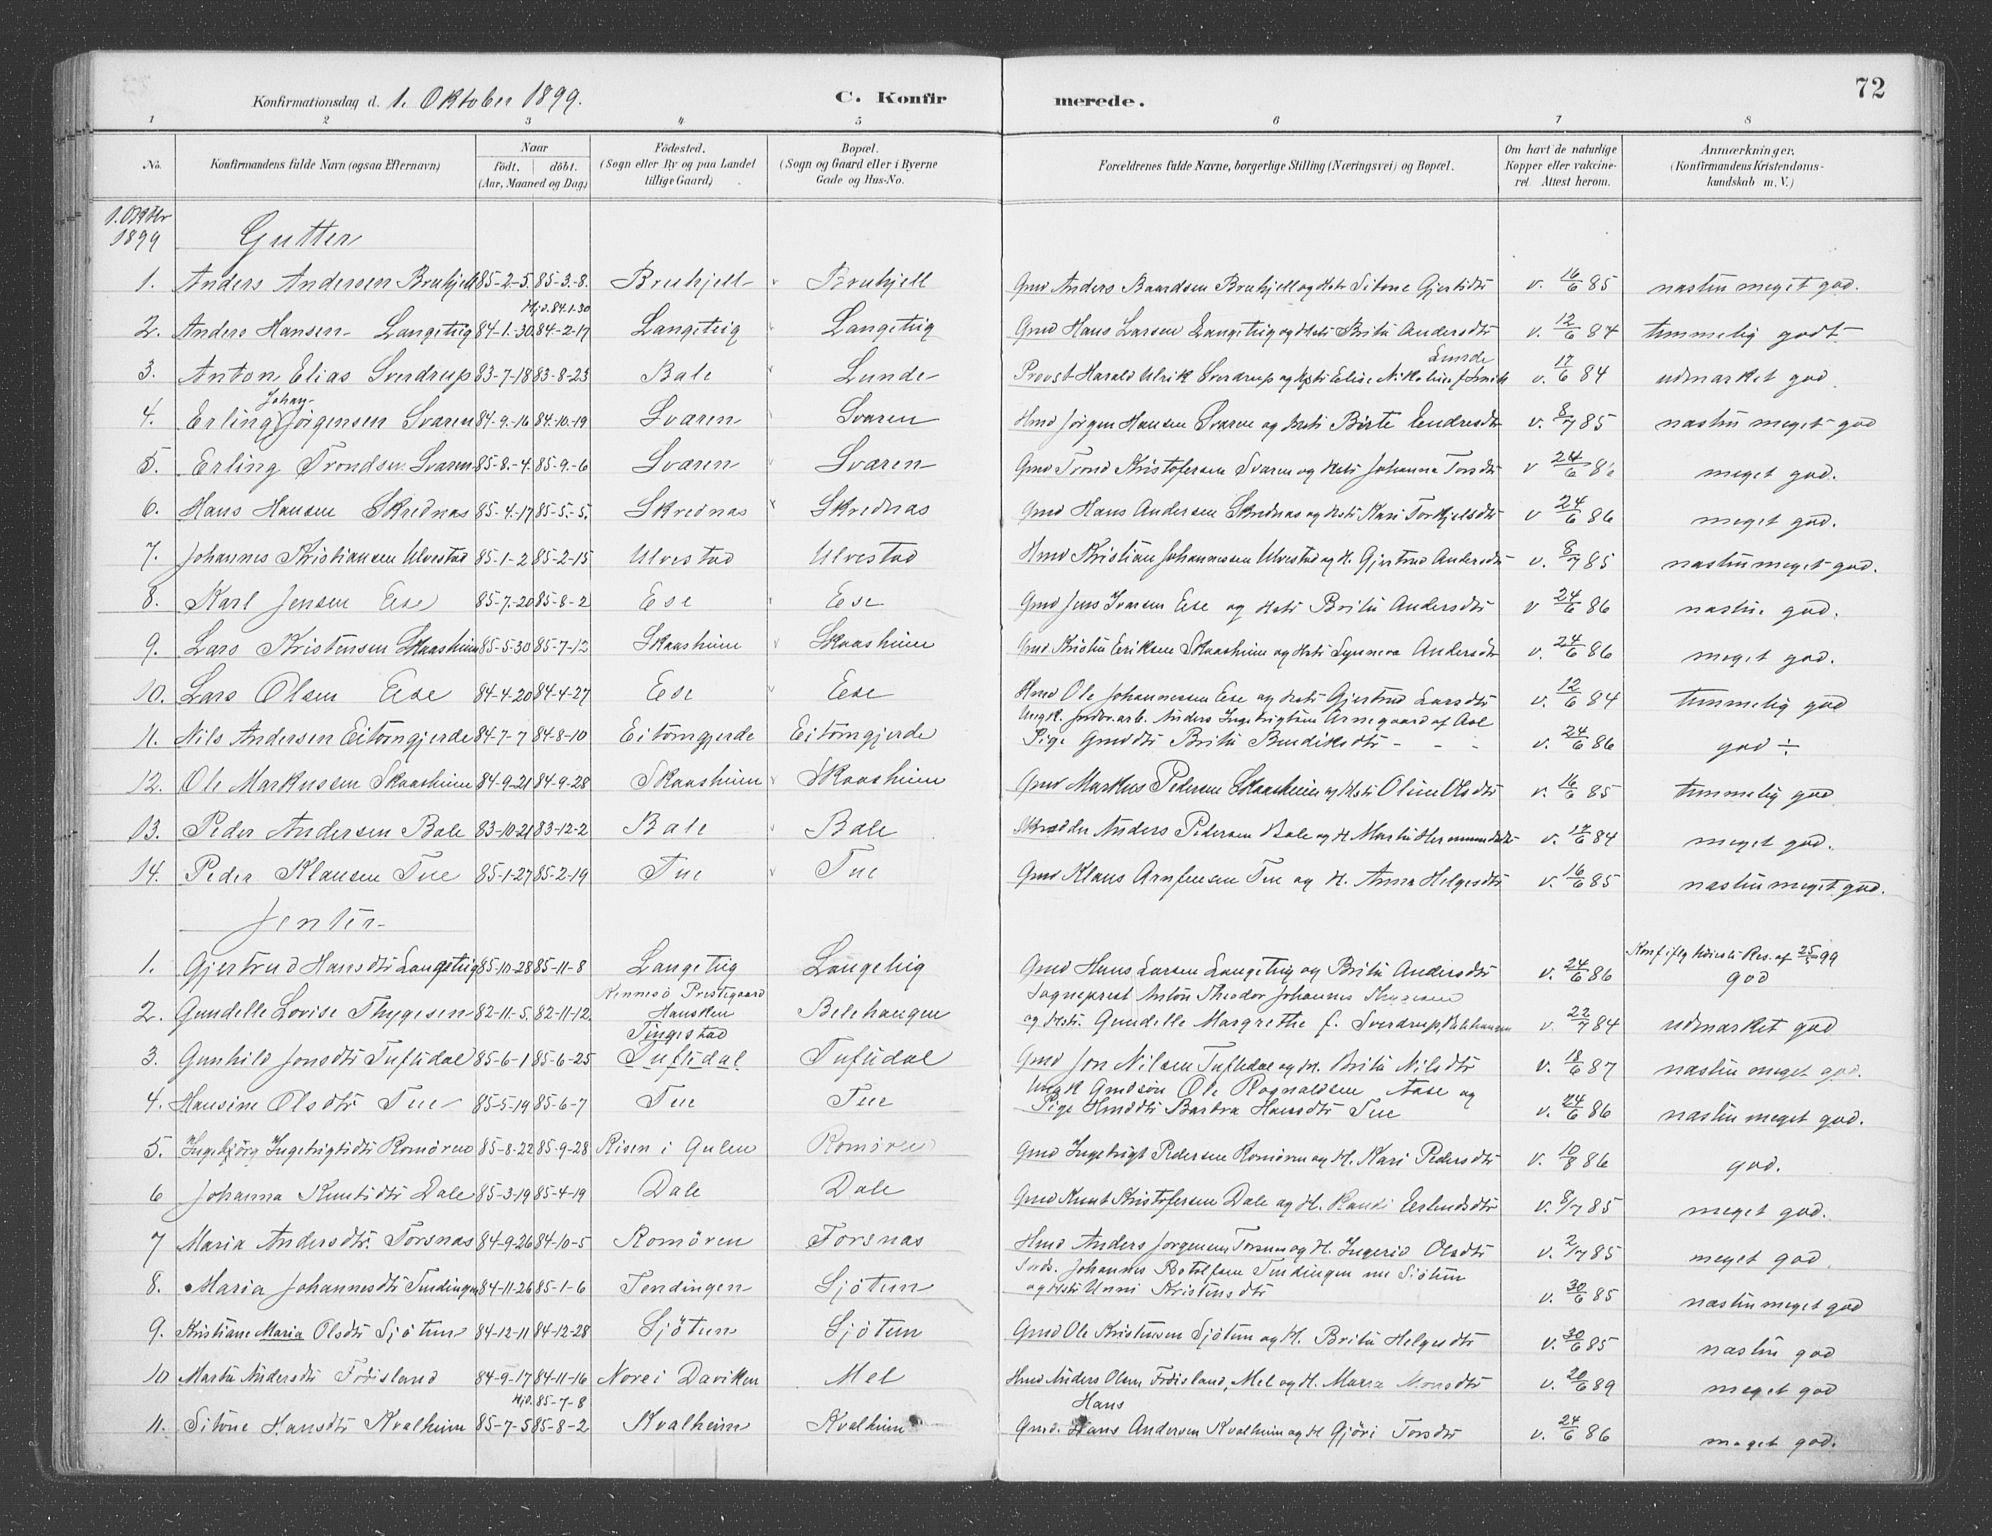 72
Konfirmationsdag d. 1. Oktober 1899. C. Konfirmerede.
1 2 3 4 5 6 7 8
No. Konfirmandens fulde Navn (ogsaa Efternavn) Naar födt. döbt. (Aar, Maaned og Dag) Födested. (Sogn eller By og paa Landet tillige Gaard) Bopæl. (Sogn og Gaard eller i Byerne Gade og Hus-No. Forældrenes fulde Navne, borgerlige Stilling (Næringsvei) og Bopæl. Om havt de naturlige Kopper eller vakcineret. Attest herom. Anmærkninger. (Konfirmandens Kristendomskundskab m. V.)
1. Oktbr 1899 Gutter
1. Anders Andersen Bruhjell 85-2-5. 85-3-8. Bruhjell Bruhjell Gmd Anders Baardsen Bruhjell og Hst Sitone Gjertsdtr v. 16/6 85 næstin meget god.
Hjd. 84.1.30
2. Anders Hansen Langeteig 84-1-30 84-2-17 Langeteig Langeteig Gmd Hans Larsen Langeteig og Hst Brita Andersdtr v. 12/6 84 temmelig godt
Lunde
3. Anton Elias Sverdrup 83-7-18 83-8-23 Bale Lunde Provst Harald Ulrik Sverdrup og Hst Elise Nikoline f. Smith v. 17/6 84 udmærket god
Johan
4. Erling Jörgensen Sværen 84-9-16 84-10-19 Sværen Sværen Hmd Jörgen Hansen Sværen og Hst Birte Endresdtr v. 8/7 85 næstin meget god
5. Erling Trondsen Sværen 85-8-4. 85-9-6 Sværen Sværen Gmd Trond Kristofersen Sværen og Hst Johanna Torsdtr v 24/6 86 meget god.
6. Hans Hansen Skrednas 85-4-17 85-5-5. Skrednas Skrednas Gmd Hans Andersen Skrednas og Hst Kari Torkjelsdtr v 24/6 86 meget god.
7. Johannes Kristiansen Ulvestad 85-1-2 85-2-15 Ulvestad Ulvestad Hmd Kristian Johannessen Ulvestad og H. Gjertrud Andersdtr v. 8/7 85 næstin meget god.
8. Karl Jensen Ese 85-7-20 85-8-2 Ese Ese Gmd Jens Jensen Ese og Hst Brita Andersdtr v 24/6 86 næstin god.
9. Lars Kristensen Skaasheim 85-5-30 85-7-12 Skaasheim Skaasheim Gmd Kristen Eriksen Skaasheim og Hst Synneva Andersdtr v. 24/6 86 meget god.
10. Lars Olsen Ese 84-4-20 84-4-27 Ese Ese Hmd Ole Johannessen Ese og Hst Gjertrud Larsdtr v. 12/6 84 temmelig god
Ungk. jordarb. Anders Ingebrigtsen Arnegaard af Aal
11. Nils Andersen Eitorngjerde 84-7-7 84-8-10 Eitorngjerde Eitorngjerde Pige Gmdsdtr Brita Bendiksdtr - - - v. 24/6 86 god ÷
12. Ole Markussen Skaasheim 84-9-21 84-9-28 Skaasheim Skaasheim Gmd Markus Pedersen Skaasheim og Hst Oline Olsdtr v. 16/6 85 temmelig god
13. Peder Andersen Bale 83-10-21 83-12-2 Bale Bale Skrædder Anders Pedersen Bale og H. Martha Hermunddtr v. 17/6 84 meget god.
14. Peder Klausen Tue 85-1-27 85-2-19 Tue Tue Gmd Klaus Arnfinsen Tue og H. Anna Helgesdtr v. 16/6 85 næstin meget god.
Jenter
1. Gjertrud Hansdtr Langeteig 85-10-28 85-11-8 Langeteig Langeteig Gmd Hans Larsen Langeteig og Brita Andersdtr v. 24/6 86 Konf. iflg af 99 god
Kinnesö Prestegaard Sogneprest Anton Theodor Johannes Thygesen
2. Gundelle Lovise Thygesen 82-11-5. 82-11-12. Hansken Belehaugen og Hst. Gundelle Margrethe f. Sverdrup, Belehaugen v. 22/7 84 udmærket god
Tingestad
3. Gunhild Jonsdtr Tuftedal 85-6-1 85-6-25 Tuftedal Tuftedal Gmd Jon Nilsen Tuftedal og H. Brita Nilsdtr v. 18/6 87 næstin meget god.
Ungk Gmdsön Ole Rognaldsen Aase og
4. Hansine Olsdtr Tue 85-5-19 85-6-7 Tue Tue Pige Hmdsdtr Barbra Hansdtr Tue v. 24/6 86 næstin meget god.
5. Ingebjörg Ingebrigtsdtr Romören 85-8-22 85-9-28 Risen i Gulen Romören Gmd Ingebrigt Pedersen Romören og H. Kari Pedersdtr v. 10/8 86 god.
6 Johanna Knutsdtr Dale 85-3-19 85-4-19 Dale Dale Gmd Knut Kristofersen Dale og H. Randi Erlendsdtr v. 8/7 85 meget god.
7 Maria Andersdtr. Torsnas 84-9-26 84-10-5 Romören Torsnas Hmd Anders Jörgensen Torsnes og H. Ingerid Olsdtr v. 2/7 85 meget god.
Johannes Botolfsen Tendingen nu Sjötun
8. Maria Johannesdtr Tendingen 84-11-26 85-1-6 Tendingen Sjötun og Hst Unni Kristensdtr v. 30/6 85 næstin meget god
9. Kristiane Maria Olsdtr Sjötun 84-12-11 84-12-28 Sjötun Sjötun Gmd Ole Kristensen Sjötun og H. Brita Helgesdtr v. 30/6 85 næstin god
10 Marta Andersdtr Fröisland 84-9-17 84-11-16 Nore i Daviken Mel Hmd Anders Olsen Fröisland, Mel og H. Maria Monsdtr v. 20/6 89 meget god
Hjd. 85-7-8 Hans
11. Sitone Hansdtr Kvalheim 85-7-5 85-8-2 Kvalheim Kvalheim Gmd. Hans Andersen Kvalheim og H Gjöri Torsdtr v. 24/6 86 meget god.